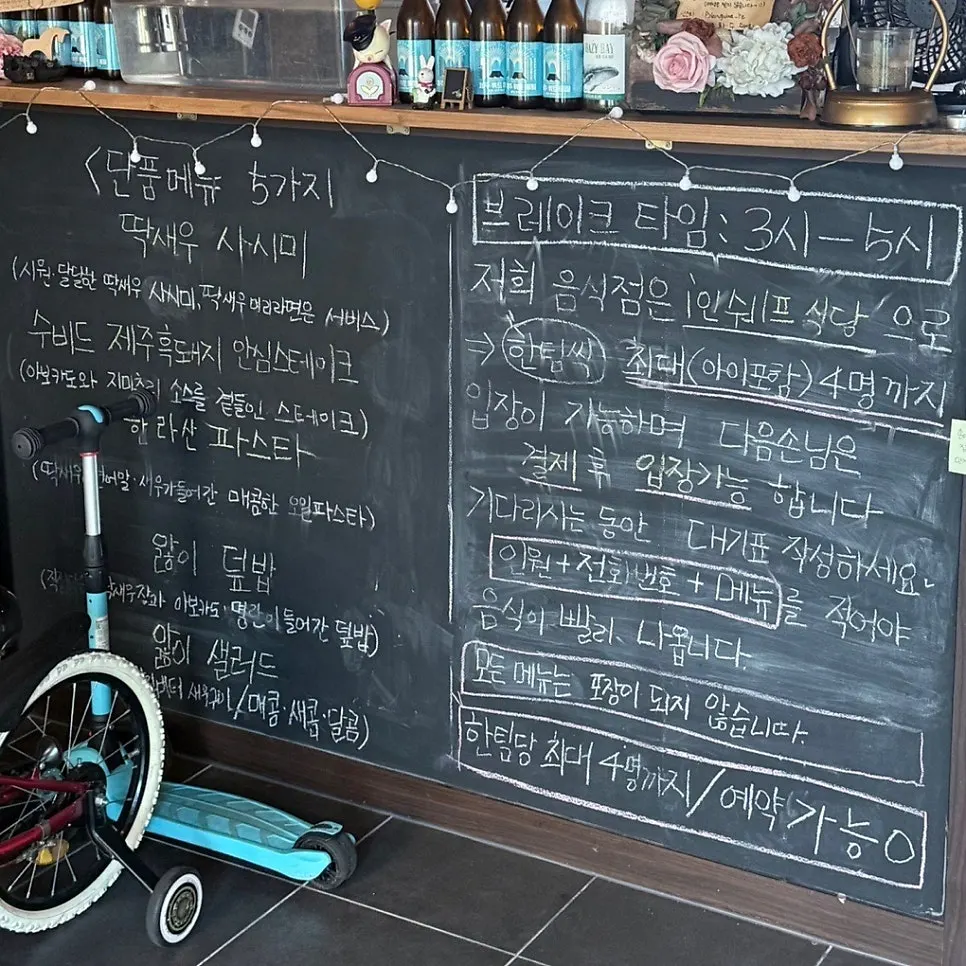 <단품메뉴 5가지
딱새우 사시미
(시원·달달한 딱새우 사시미, 딱새우 머리라면은 서비스)
수비드 제주흑돼지 안심스테이크
(아보카도와 치미추리 소스를 곁들인 스테이크)
한라산 파스타
(딱새우 새우가들어간 매콤한 오일파스타)
왊이 덮밥
딱새우장과 아보카도·명란이 들어간 덮밥)
왊이 샐러드
새우구이/매콤·새콤·달콤)
브레이크 타임: 3시-5시
저희 음식점은 1인쉐프 식당 으로
→ 한팀씩 최대(아이포함) 4명까지
입장이 가능하며 다음손님은
결제 후 입장가능 합니다
기다리시는 동안 대기표 작성하세요.
인원+전화번호+메뉴를 적어야
음식이 빨리 나옵니다.
모든 메뉴는 포장이 되지 않습니다.
한팀당 최대 4명까지/예약가능O